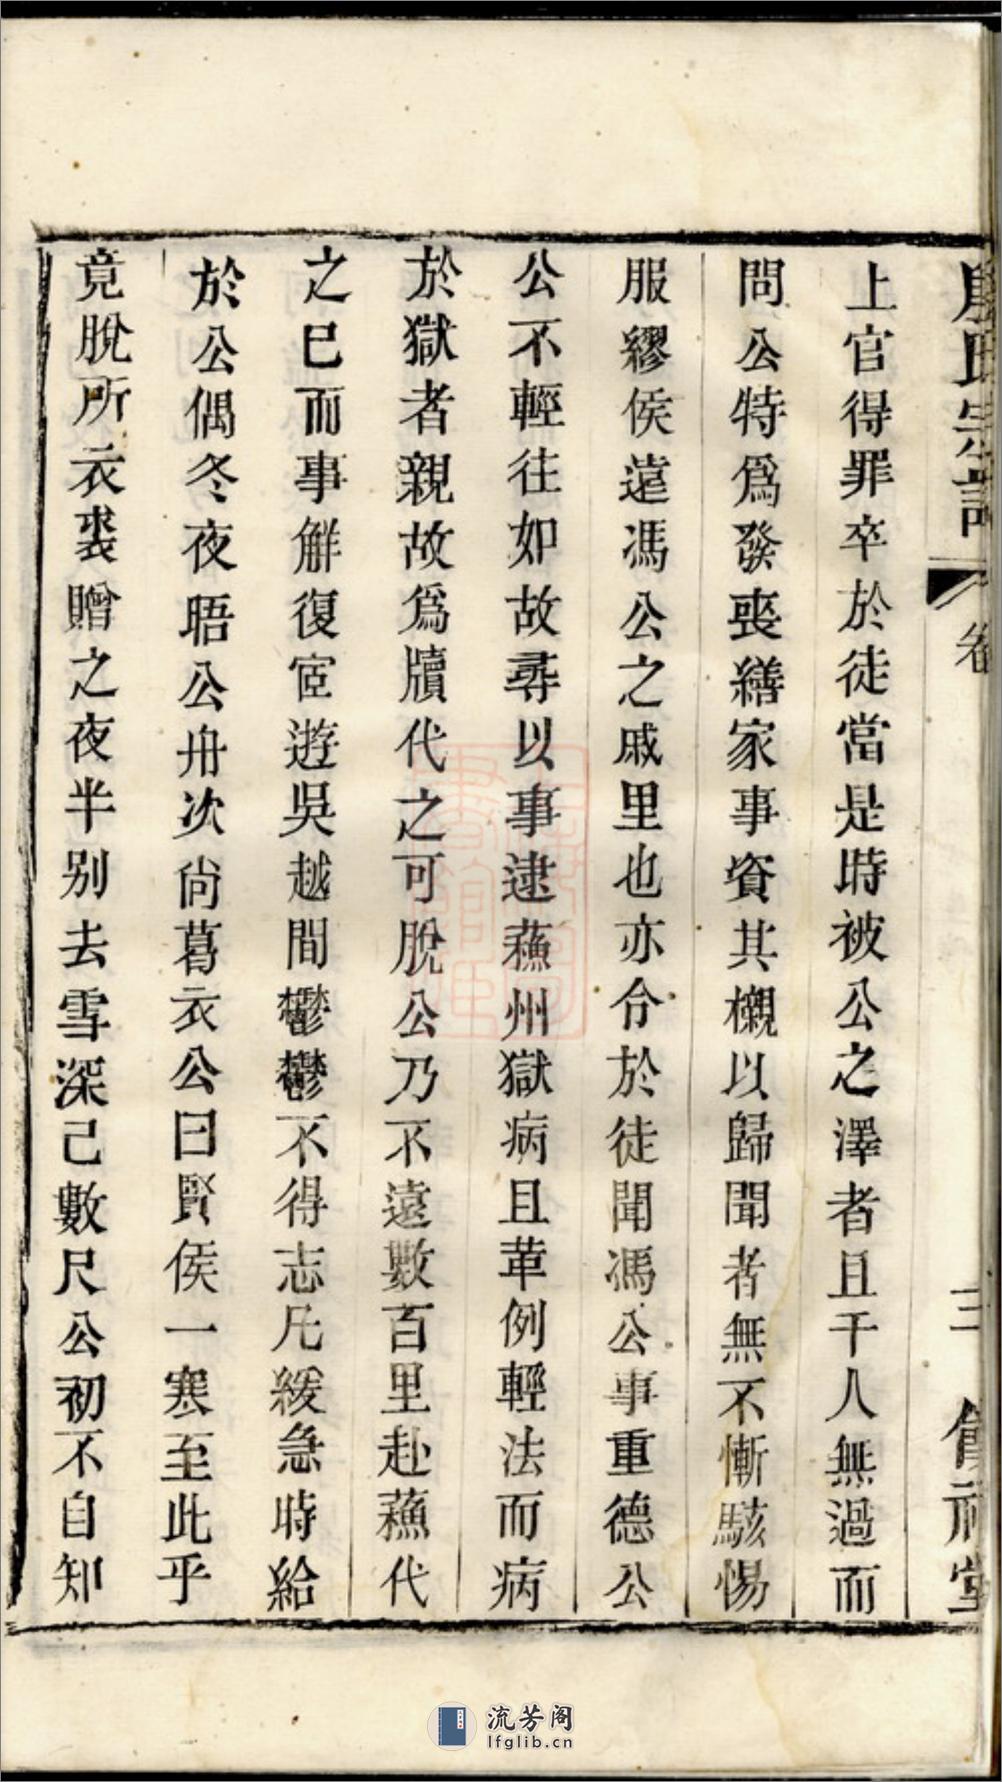 氏宗譜 卷 三
上官得罪卒於徒當是時被公之澤者且千人無過而
問公特爲發喪繕家事資其櫬以歸聞者無不慚駭惕
服繆侯遠馮公之戚里也亦令於徒聞馮公事重德公
公不輕往如故尋以事逮蘓州獄病且革例輕法而病
於獄者親故爲牘代之可脫公乃不遠數百里赴蘓代
之已而事觧復宦遊吳越間鬱鬱不得志凡緩急時給
於公偶冬夜晤公舟次尙葛衣公曰賢侯一寒至此乎
竟脫所衣裘贈之夜半别去雪深已數尺公初不自知
流芳阁
lfglib.cn